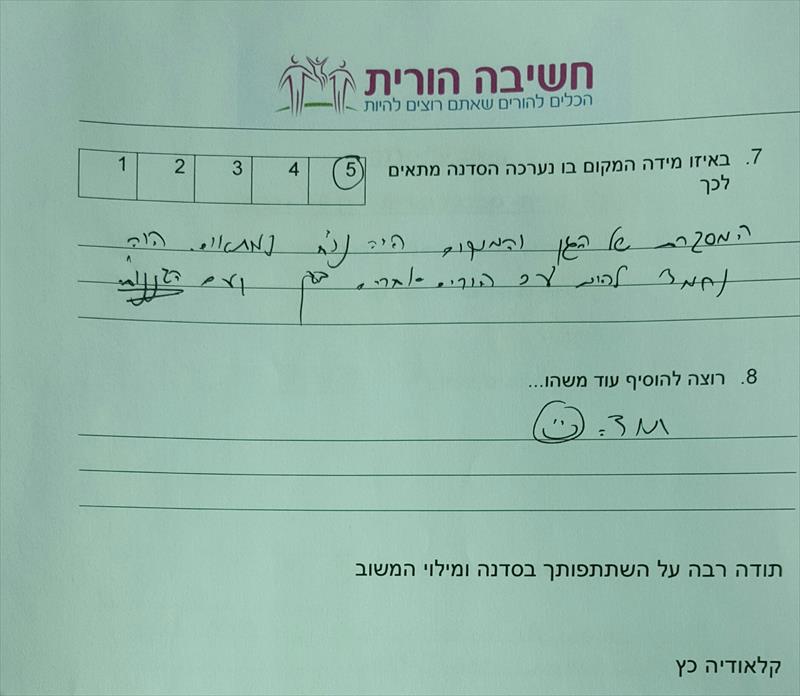 חשיבה הורית
הכלים להורים שאתם רוצים להיות
7. באיזו מידה המקום בו נערכה הסדנה מתאים לכך
1 2 3 4 5
המסגרת של הגן והמקום היה נוח ומתאים. היה
נחמד להיות עם הורים אחרים בגן ועם הגננות
8. רוצה להוסיף עוד משהו...
תודה רבה על השתתפותך בסדנה ומילוי המשוב
קלאודיה כץ